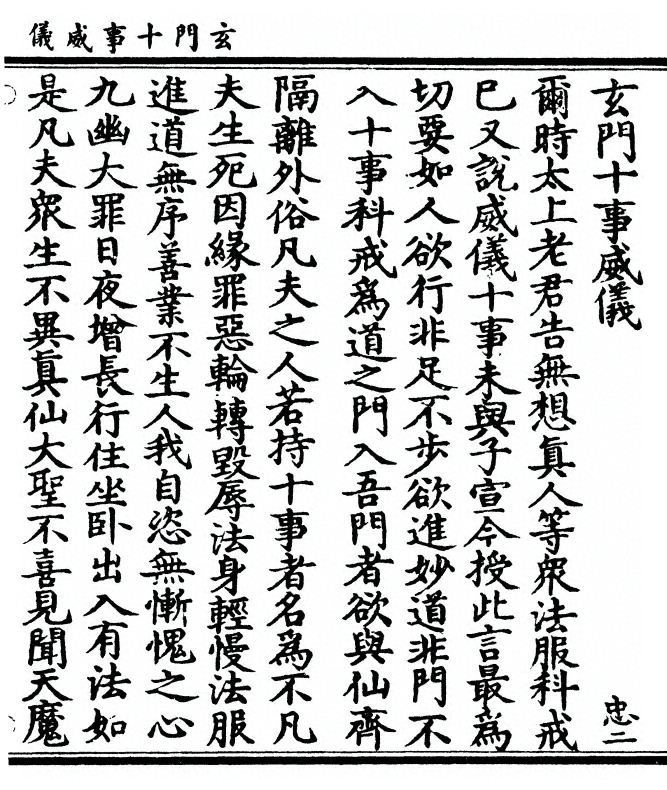 玄門十事威儀
玄門十事威儀
忠二
爾時太上老君告無想真人等眾法服科戒
已又說威儀十事未與子宣今授此言最為
切要如人欲行非足不步欲進妙道非門不
入十事科戒為道之門入吾門者欲與仙齊
隔離外俗凡夫之人若持十事者名為不凡
夫生死因緣罪惡輪轉毀辱法身輕慢法服
進道無序善業不生人我自恣無慚愧之心
九幽大罪日夜增長行住坐卧出入有法如
是凡夫眾生不異真仙大聖不喜見聞天魔